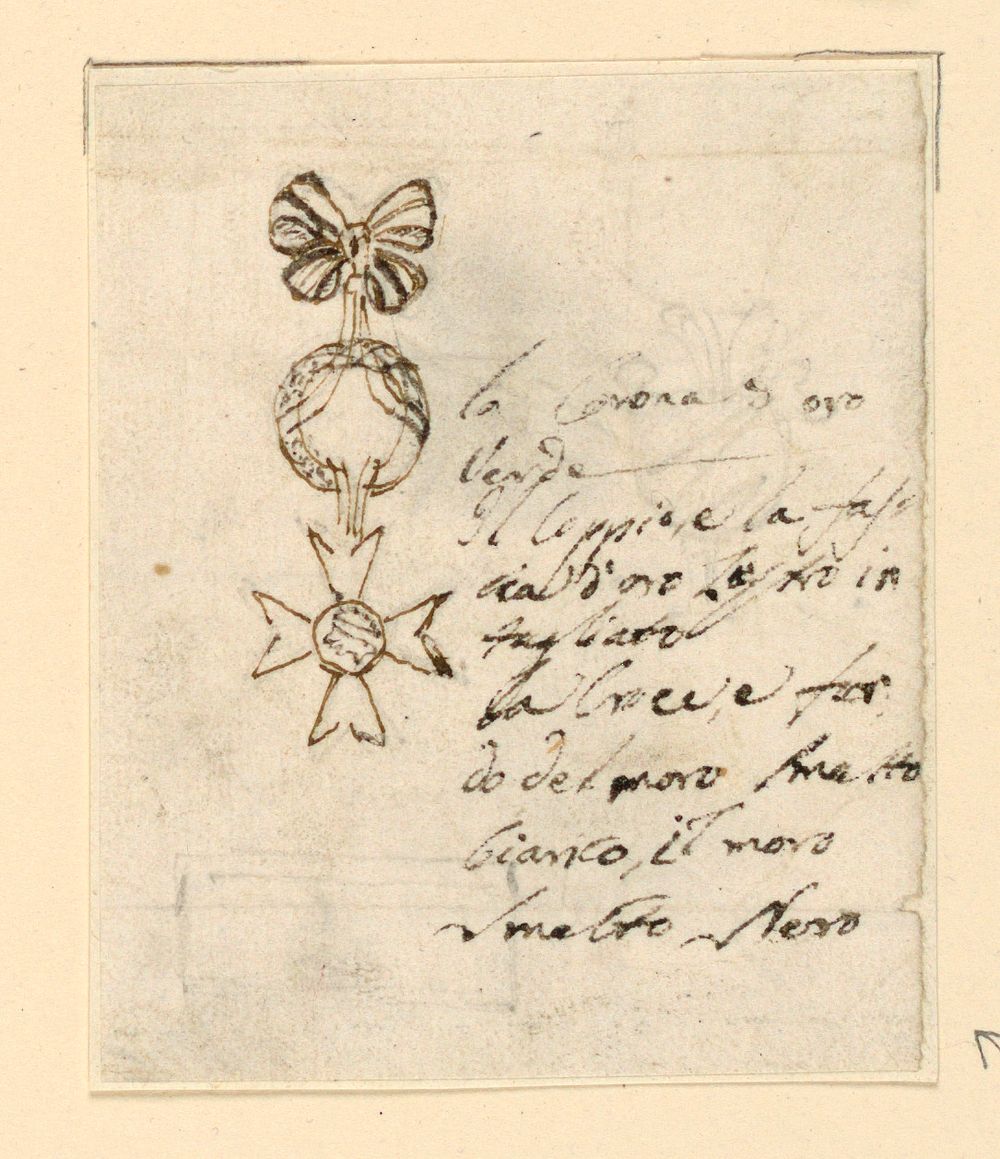 la Corona d oro
Verde
Il Coppio, e la fas
cia d'oro in
tagliato
La Croce, e fon
do del moro Smalto
bianco, il moro
Smalto Nero